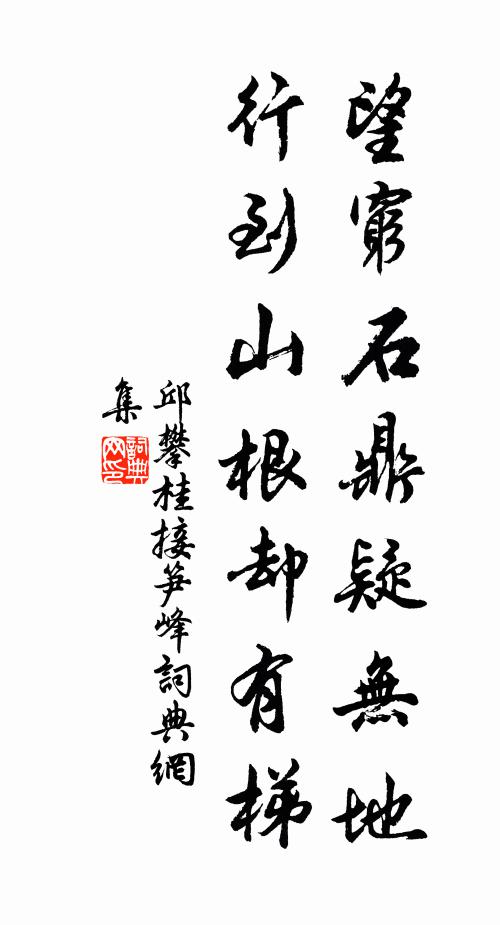 望窮石鼎疑無地
行到山根却有梯
邱攀桂接笋峰詞典網
集
詞典網印